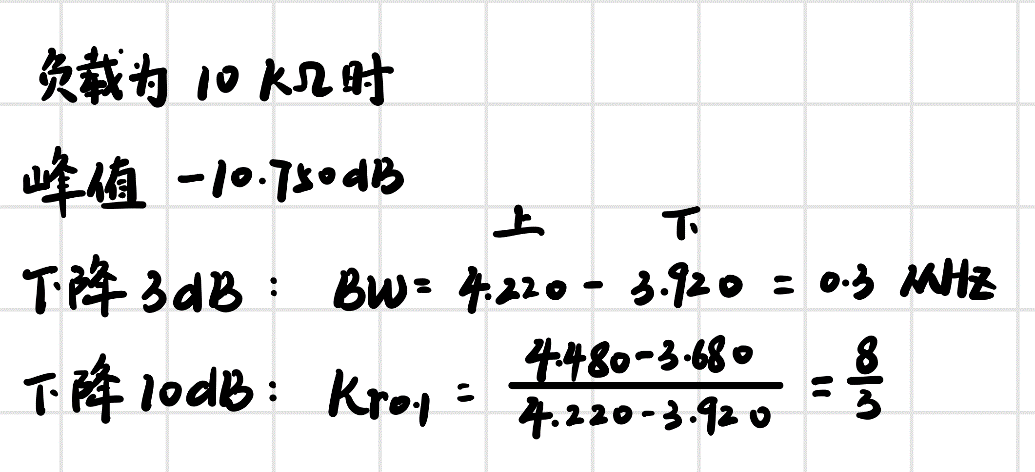 负载为 10 KΩ 时
峰值 -10.750dB
上 下
下降 3dB : BW = 4.220 - 3.920 = 0.3 MHz
下降 10dB : Kr0.1 = (4.480-3.680)/(4.220-3.920) = 8/3